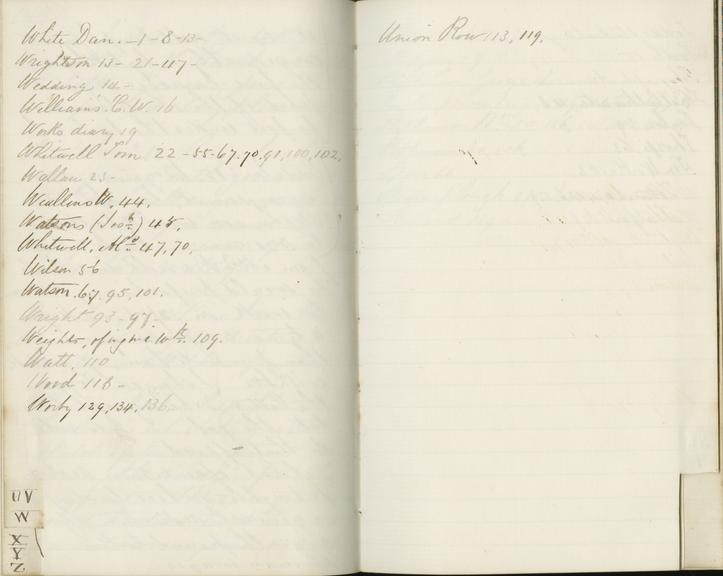 White Dan. - 1 - 8 - 13 -
Wrightson 13 - 21 - 117 -
Wedding 14 -
Williams. C. W. 16
Works diary 19
Whitwell Tom 22 - 55 - 67. 70. 91, 100, 102,
Wallam 23 -
W. 44.
Watsons (Josh) 45,
Whitwell, 47, 70,
Wilson 56
Watson. 67. 95, 101.
Wright 93 - 97 -
Weights, of engine 109.
Watt. 110
Wood 118 -
Worby 129, 134, 136
Union Row 113, 119.
UV
W
X
Y
Z